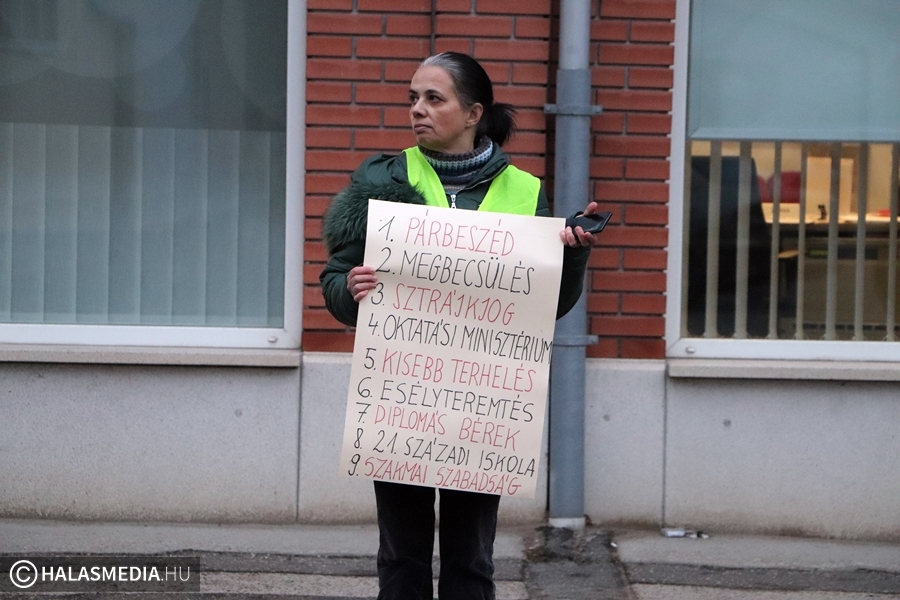 1. PÁRBESZÉD
2. MEGBECSÜLÉS
3. SZTRÁJKJOG
4. OKTATÁSI MINISZTÉRIUM
5. KISEBB TERHELÉS
6. ESÉLYTEREMTÉS
7. DIPLOMÁS BÉREK
8. 21. SZÁZADI ISKOLA
9. SZAKMAI SZABADSÁG
© HALASMEDIA.HU